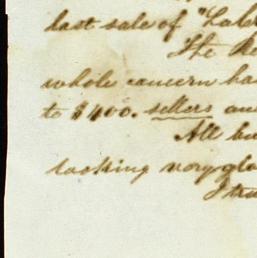 last sale of "Lab
The Re
whole concern ha
to $400. sellers an
All bu
looking very glo
I tru